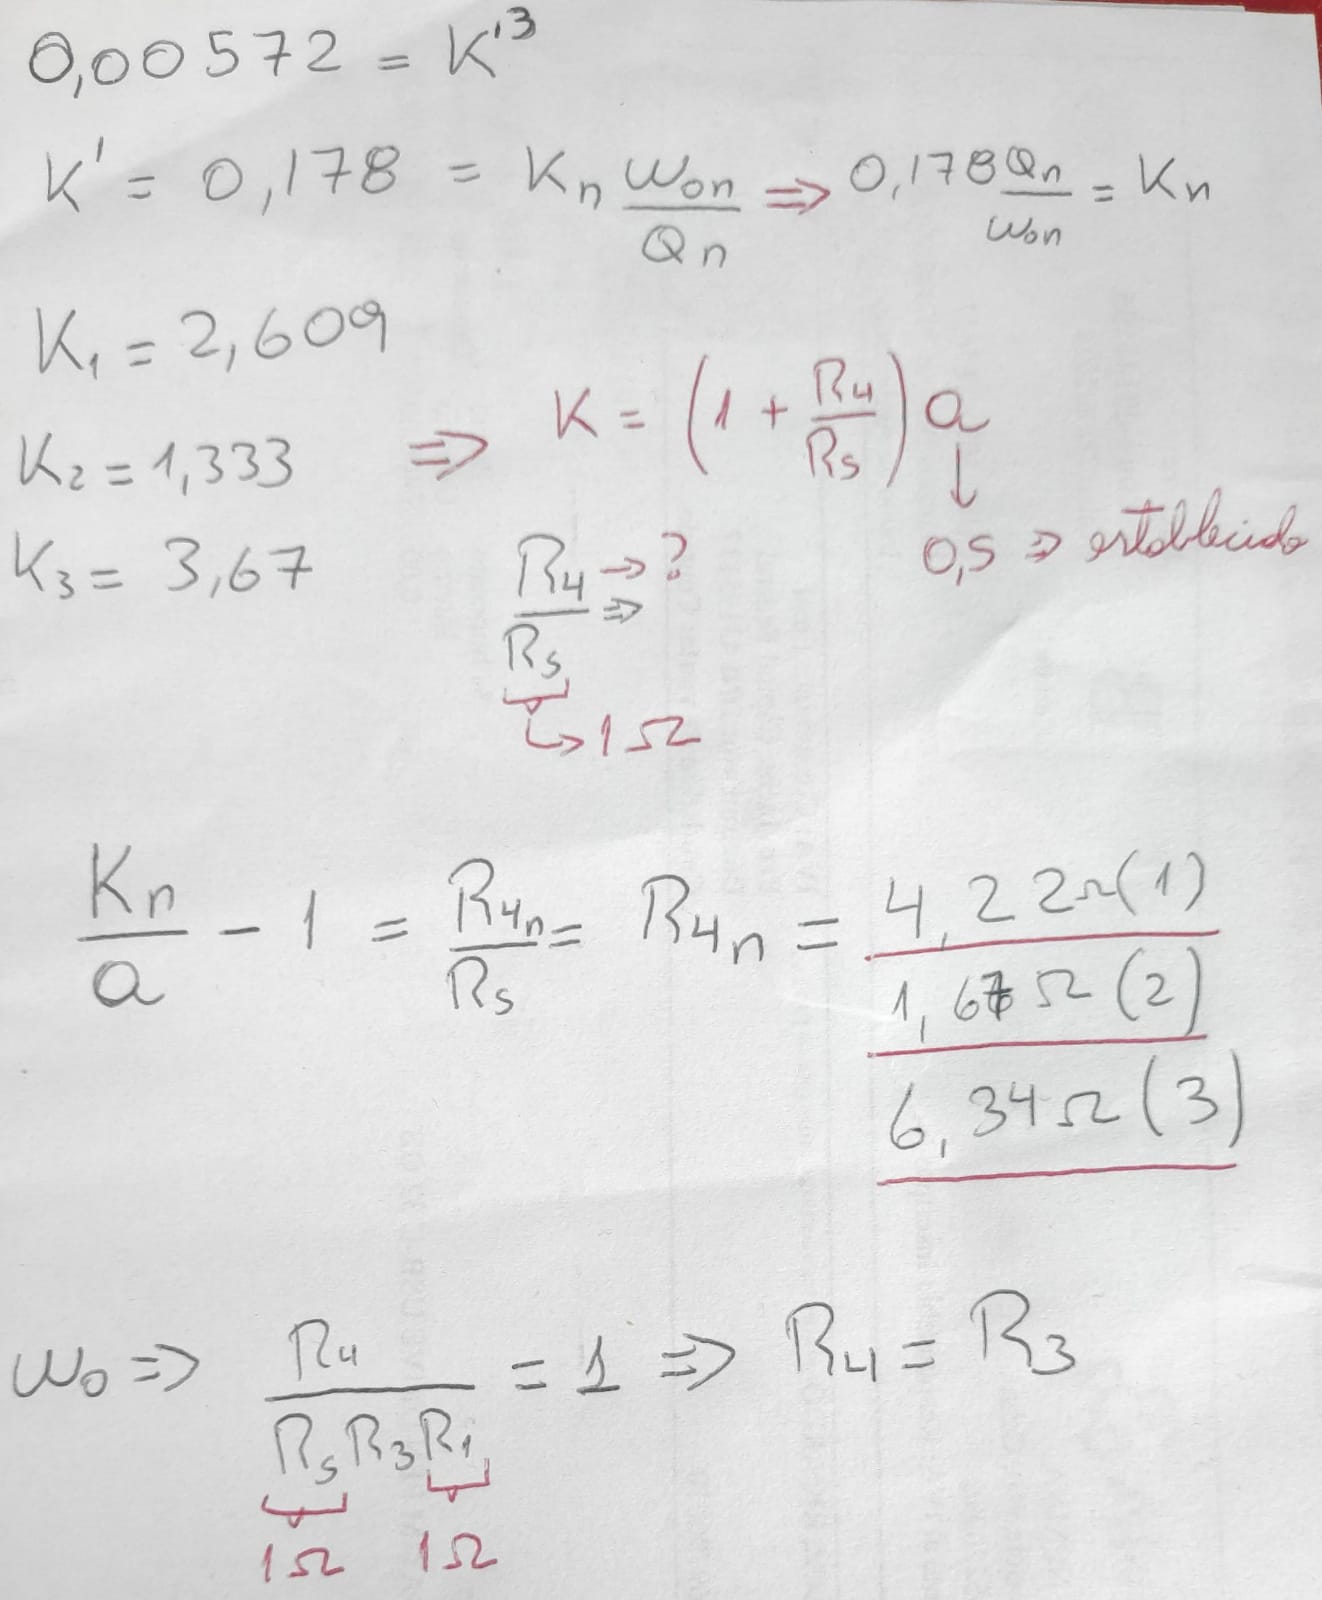 0,00572 = K'³
K' = 0,178 = Kn ωon/Qn ⇒ 0,178 Qn/ωon = Kn
K₁ = 2,609
K₂ = 1,333 ⇒ K = (1 + R4/R5) a
K₃ = 3,67
↓
0,5 ⇒ establecido
R4/R5 → ? ⇒
↳ 1Ω
Kn/a - 1 = R4n/R5 = R4n = 4,22Ω (1)
1,67Ω (2)
6,34Ω (3)
ω₀ ⇒ R4/(R5 R3 R1) = 1 ⇒ R4 = R3
1Ω 1Ω